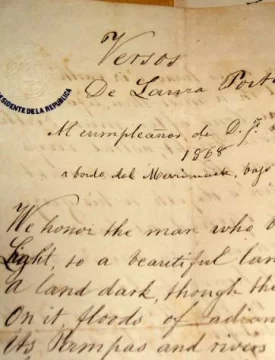 PRESIDENTE DE LA REPUBLICA
Versos
De Laura
Al cumpleaños de D. F.
1868
abordo del Merrimack, bajo
We honor the man who
Light, to a beautiful lan
A land dark, though the
On it floods of radian
Its Pampas and rivers